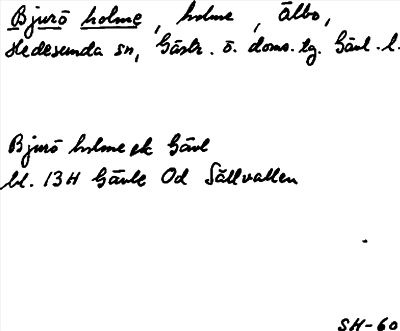 Bjurö holme, holme, Älbo,
Hedesunda sn, Gästr. ö. doms. tg. Gävl. l.
Bjurö holme ek Gävl
bl. 13H Gävle Od Sällvallen
SH-60